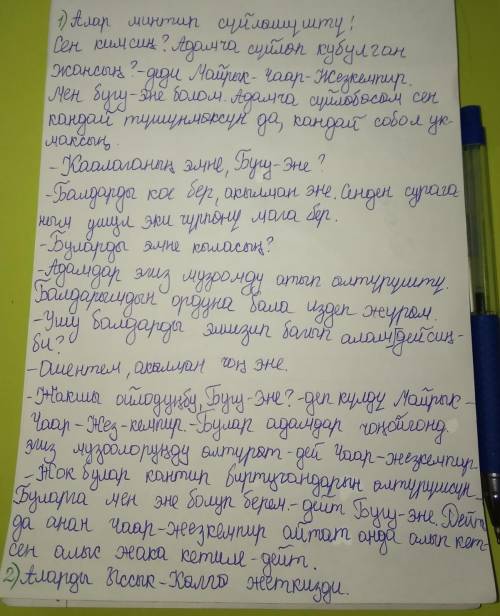 1) Алар минтип сүйлөшүштү!
Сен кимсиң? Адамча сүйлөп кубулган
жансың? - деди Майрык-Чаар-Жезкемпир.
Мен бугу-эне болом. Адамча сүйлөбөсөм сен
кандай түшүнмөксүң да, кандай собол ук-
максың.
- Каалаганың эмне, Бугу-Эне?
- Балдарды кое бер, акылман эне. Сенден сурага
ным ушул эки гүрпөнү мага бер.
- Буларды эмне кыласың?
- Адамдар эгиз музоомду атып өлтүрүштү.
Балдарымдын ордуна бала издеп жүрөм.
- Ушу балдарды эмизип багып алам дейсиң-
би?
- Ошентем, акылман чоң эне.
- Жакшы ойлодуңбу, Бугу-Эне? - деп күлдү Майрык-
Чаар-Жез-кемпир. - Булар адамдар чоңойгонд
эгиз музоолоруңду өлтүрөт - дей Чаар-жезкемпир.
- Жок булар кантип бир туугандарын өлтүрүшсүн.
Буларга мен эне болуп берем. - дейт Бугу-эне. Дейт
да анан Чаар-жезкемпир айтат анда алып кет-
сен алыс жака кетиле - дейт.
2) Аларды Ыссык-Көлгө жеткизди.